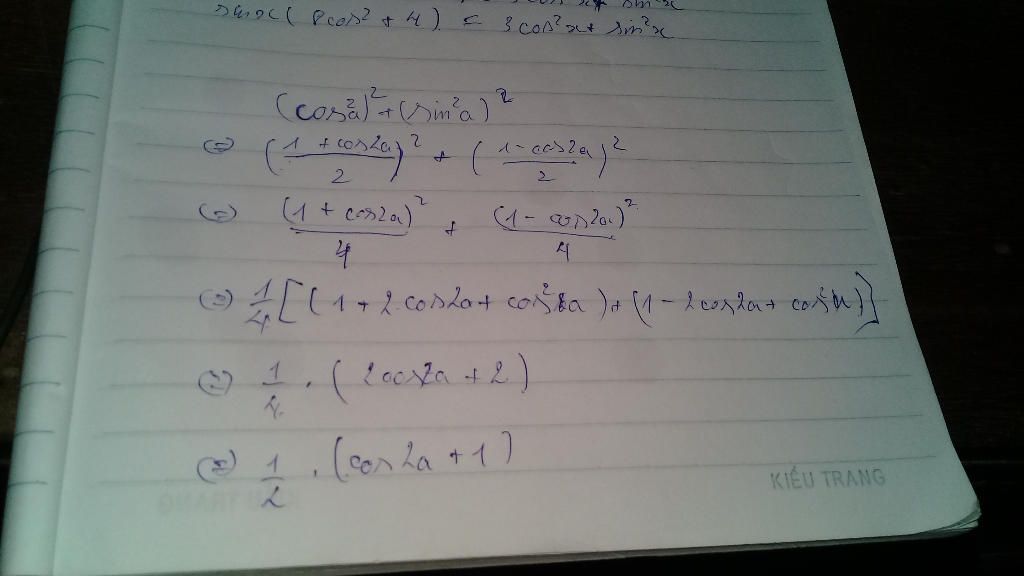 sinx(8cos² + 4) = 3cos²x + sin²x
(cos²a)² + (sin²a)²
(=) ((1 + cos2a)/2)² + ((1 - cos2a)/2)²
(=) (1 + cos2a)²/4 + (1 - cos2a)²/4
(=) 1/4 [(1 + 2.cos2a + cos²2a) + (1 - 2cos2a + cos²2a)]
(=) 1/4 . (2cos2a + 2)
(=) 1/2 . (cos2a + 1)
KIỀU TRANG